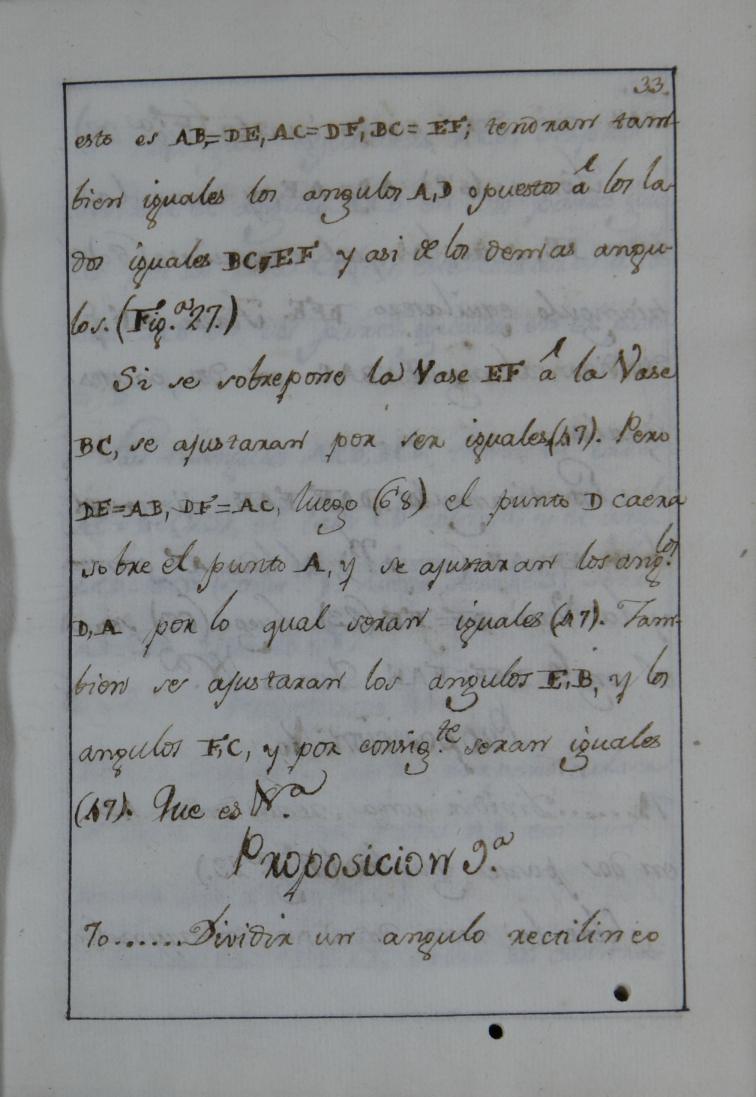 33.
esto es AB=DE, AC=DF, BC=EF; tendran tam-
bien iguales los angulos A,D opuestos â los la-
dos iguales BC,EF y asi de los demas angu-
los. (Fig.as 27.)
Si se sobrepone la Vase EF â la Vase
BC, se ajustaran por ser iguales (47). Pero
DE=AB, DF=AC, luego (68) el punto D caera
sobre el punto A, y se ajustaran los ang.los
D,A por lo qual seran iguales (47). Tam-
bien se ajustaran los angulos E,B, y los
angulos F,C, y por consig.te seran iguales
(47). Que es N.a
Proposicion 9.a
70.......Dividir un angulo rectilineo